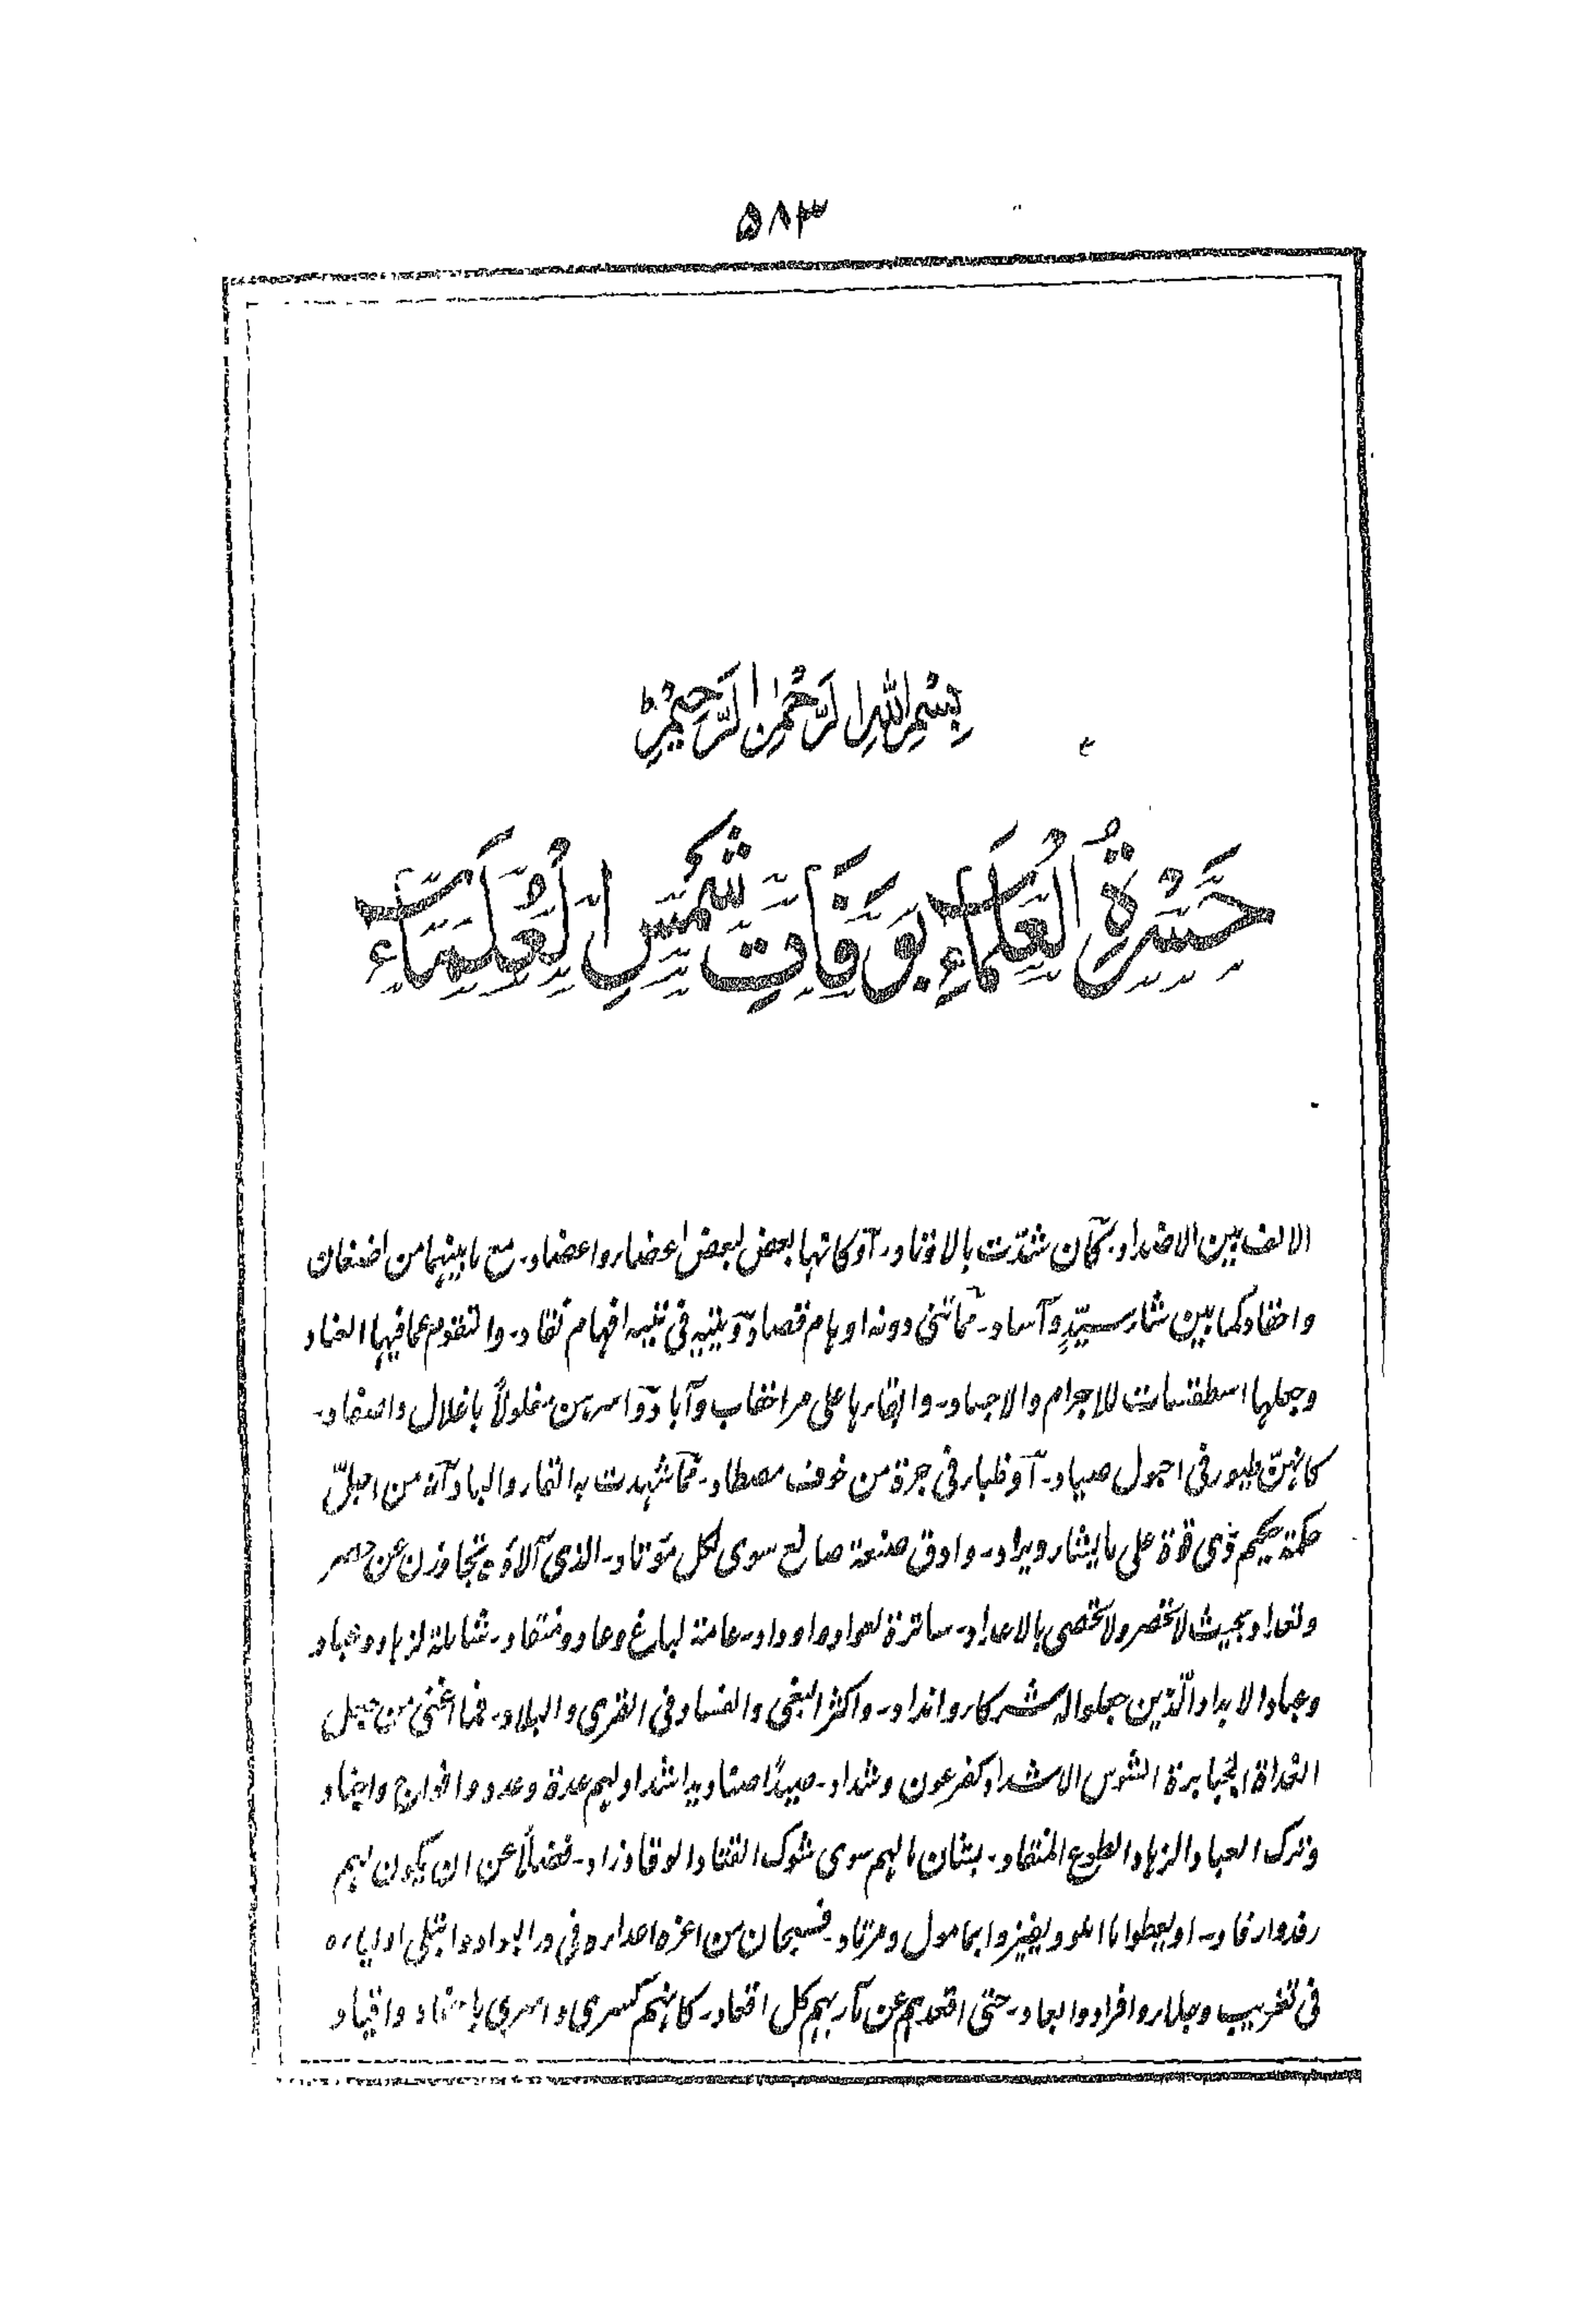 ۵۸۳
بِسْمِ اللهِ الرَّحْمٰنِ الرَّحِيْمِ ط
حَسْرَةُ الْعُلَمَاءِ بِوَفَاتِ شَمْسِ الْعُلَمَاءِ
الالف بين الاضداد۔ كأن شدّت بالاوتاد۔ أو كانها بعض لبعض اعضاء واعضاد۔ مع ما بينهما من اضغان
واحقاد كما بين شاء سيّد وآساد۔ دونه اوهام قصاد ويتيه في تيه افهام نقاد۔ والتقوم عما فيها العناد
وجعلها اسطقسات للاجرام والاجساد۔ وابقاءها على مر احقاب وآباد واسرهن مغلولاً باغلال واصفاد۔
كانهنّ طيور في احبول صياد۔ أو ظباء في جرة من خوف مصطاد۔ شهدت به النهار والباد أنه من اجلّ
حكمة حكيم ذي قوة على ما يشاء ويراد۔ وادق صنعة صانع سوى لكل مؤتاد۔ الذي آلاؤه تجاوزن عن حصر
وتعداد بحيث لا تحصر ولا تحصى بالاعداد۔ سائرة لعداد واوداد۔ عامة لباغ وعاد ومنقاد۔ شاملة لزهاد وعباد
وعباد الابداد الّذين جعلوا له شركاء وانداد۔ واكثر البغي والفساد في القرى والبلاد۔ فما اغنى من
الجبابرة الشوس الاشداد كفرعون وشداد۔ صيدًا صناديد اشداد لهم عدة وعدد وافواج واجناد
وترك العباد الزهاد الطوع المنقاد۔ بشان ما لهم سوى شوك القتاد الوقاد زاد۔ فضلاً عن ان يكون لهم
رفد وارفاد۔ او يعطوا ما املوا ويفيزوا بما مول ومرتاد۔ فسبحان من اعزه اعداءه في والابعاد وابتلى اولياءه
في تغريب وجلاء وافراد وابعاد۔ حتى اقعدهم عن مآربهم كل اقعاد۔ كانهم كسرى او اسرى واقياد